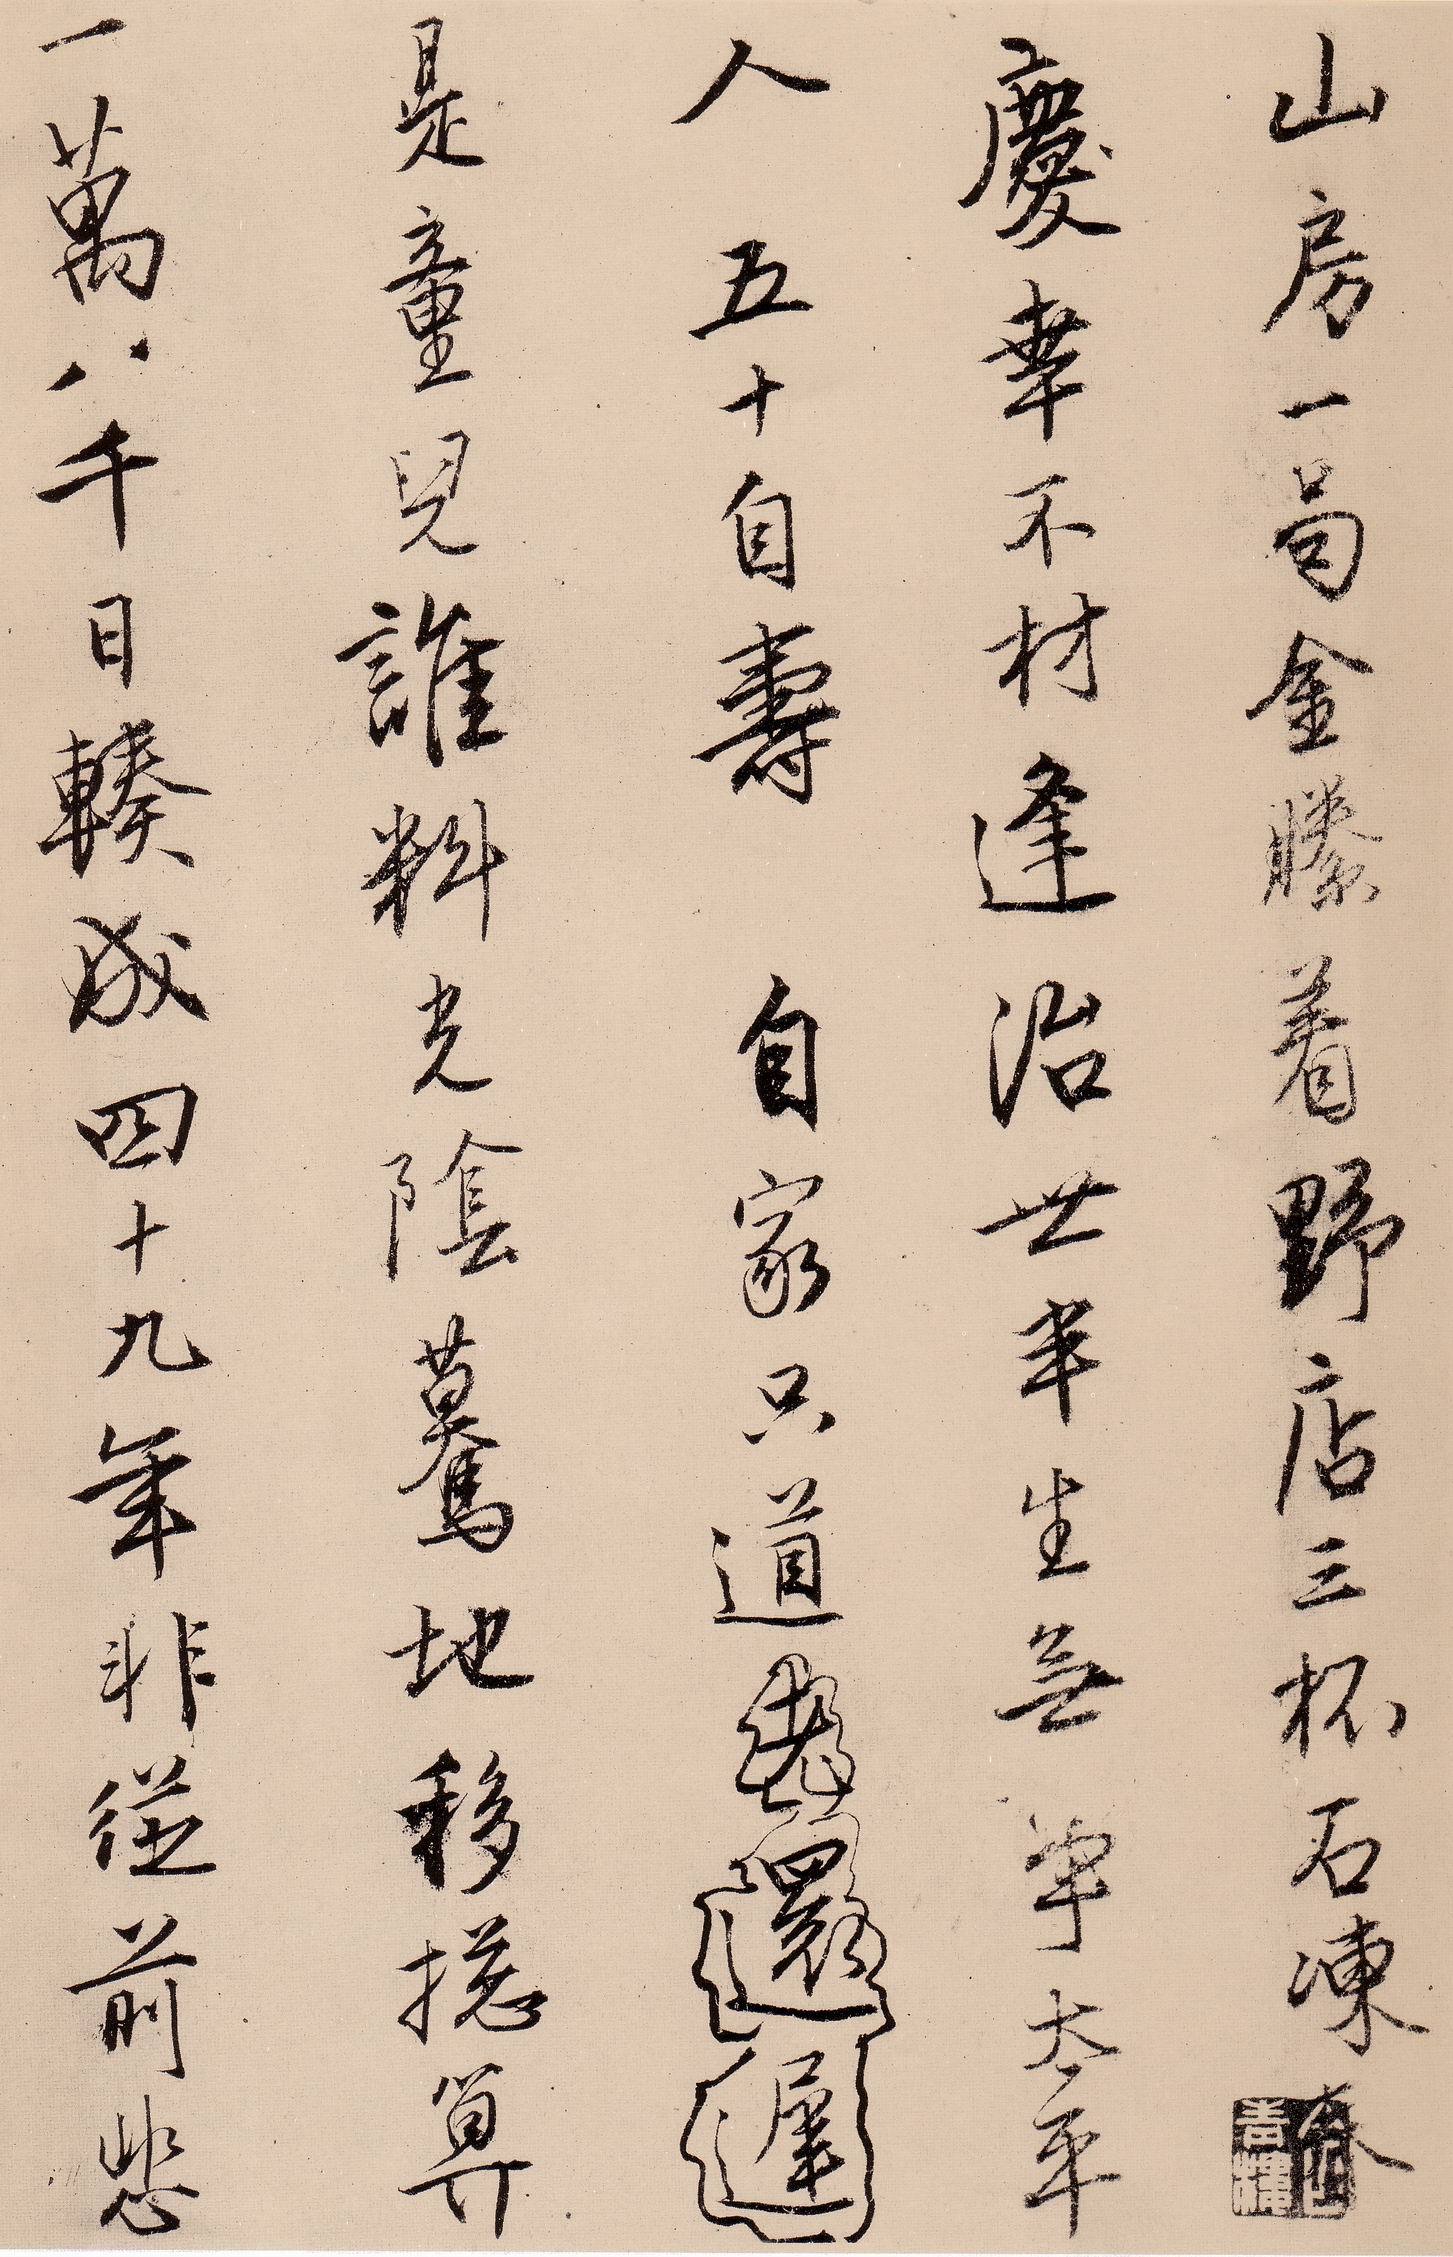 山房一局金縢着野店三杯石凍春
慶幸不材逢治世半生無事太平
人 五十自壽 自家只道老還遲
是童兒誰料光陰驀地移總算
一萬八千日輳成四十九年非從前悲